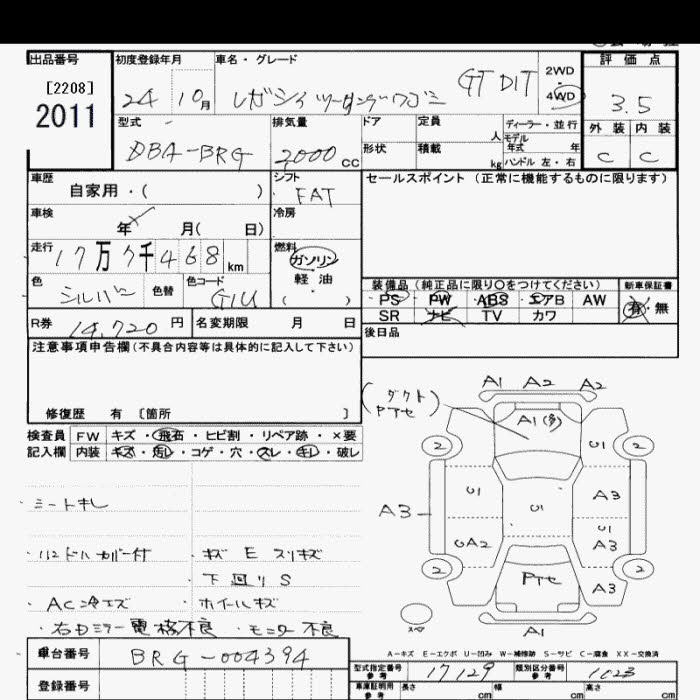 出品番号 初度登録年月 車名・グレード 評価点
[2208]
2011
24 10月 レガシィツーリングワゴン GT DIT 2WD 4WD 3.5
型式 排気量 ドア 定員 人 ディーラー・並行 外装 内装
モデル年式 年
DBA-BRG 2000cc 形状 積載 kg ハンドル 左・右 C C
車歴 自家用・( ) シフト FAT セールスポイント (正常に機能するものに限ります)
車検 年 月( 日) 冷房
走行 17万7千468km 燃料 ガソリン
軽油
( )
色 シルバー 色替 色コード G1U
装備品 (純正品に限り○をつけてください) 新車保証書
PS PW ABS エアB AW 有・無
SR ナビ TV カワ
R券 14,720円 名変期限 月 日 後日品
注意事項申告欄(不具合内容等は具体的に記入して下さい)
修復歴 有 [箇所 ]
検査員記入欄 FW キズ・飛石・ヒビ割・リペア跡・×要
内装 キズ・汚レ・コゲ・穴・スレ・キレ・破レ
シートキレ
ハンドルカバー付 ・キズ E スリキズ
下回りS
・AC冷エズ ・ホイールキズ
・右ドミラー電格不良 ・モニター不良
(ダクトPTセ)
A1 A2 A2
A1(多)
2 U1 2
U1 A3
A3 U1 U1
UA2 A3
2 PTセ A3 2
スペ A1
A-キズ E-エクボ U-凹み W-補修跡 S-サビ C-腐食 XX-交換済
車台番号 BRG-004394
型式指定番号 参考 17129 類別区分番号 参考 1023
登録番号 車庫証明用 参考 長さ cm 幅 cm 高さ cm